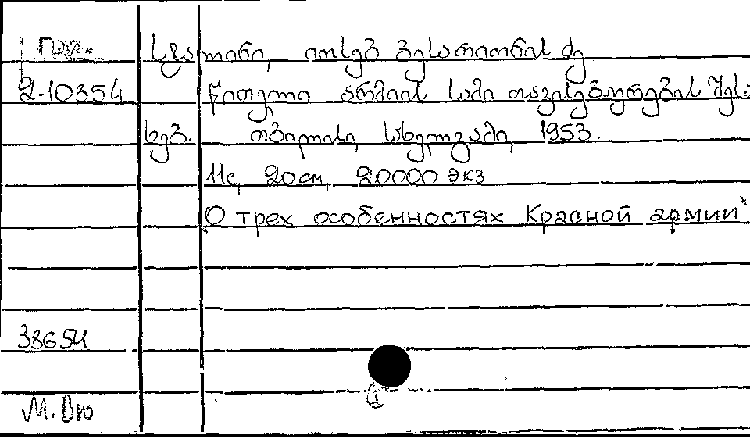 სტალინი, იოსებ ბესარიონის ძე
2-10354 წითელი არმიის სამი თავისებურების შეს-
ხებ. თბილისი, სახელგამი, 1953.
11с, 20см, 20000 экз
О трех особенностях Красной армии
33654